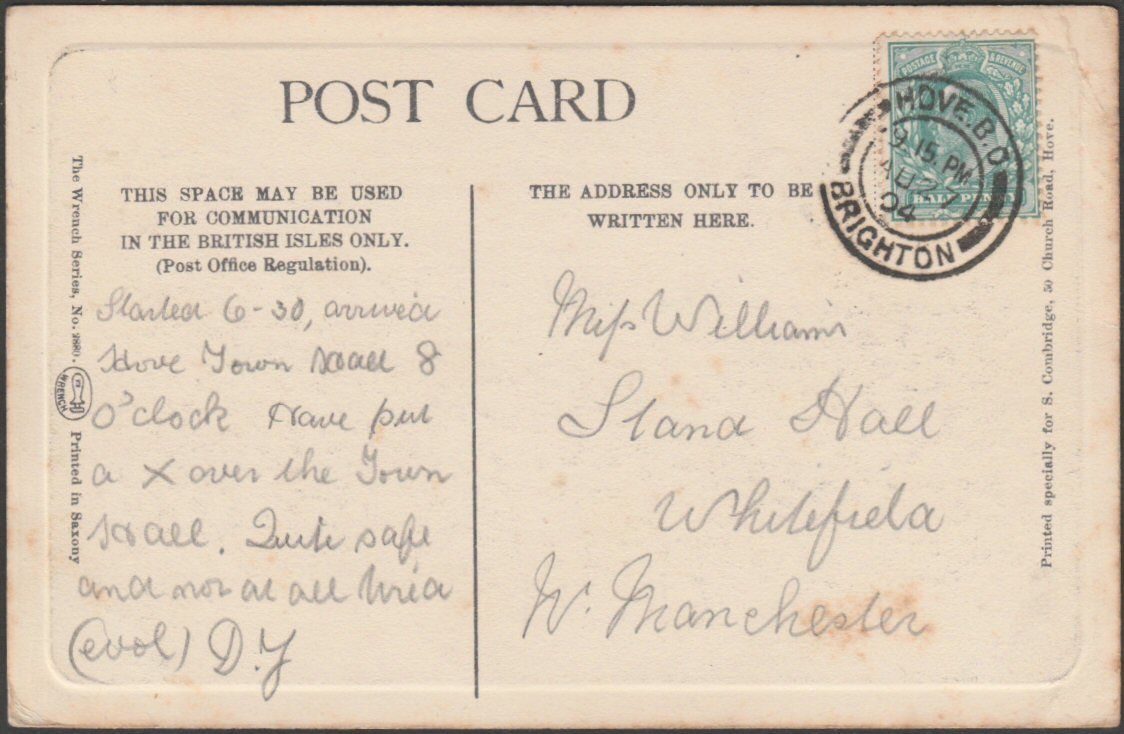 POST CARD
The Wrench Series, No. 2880.
WRENCH
Printed in Saxony
THIS SPACE MAY BE USED
FOR COMMUNICATION
IN THE BRITISH ISLES ONLY.
(Post Office Regulation).
Started 6-30, arrived
Hove Town Hall 8
O'clock Have put
a X over the Town
Hall. Quite safe
and not at all tired
(evol) D.Y
THE ADDRESS ONLY TO BE
WRITTEN HERE.
Miss Williams
Stand Hall
Whitefield
Nr. Manchester
POSTAGE & REVENUE
HOVE. B.O
9.15 PM
AU 27
04
BRIGHTON
Printed specially for S. Combridge, 50 Church Road, Hove.